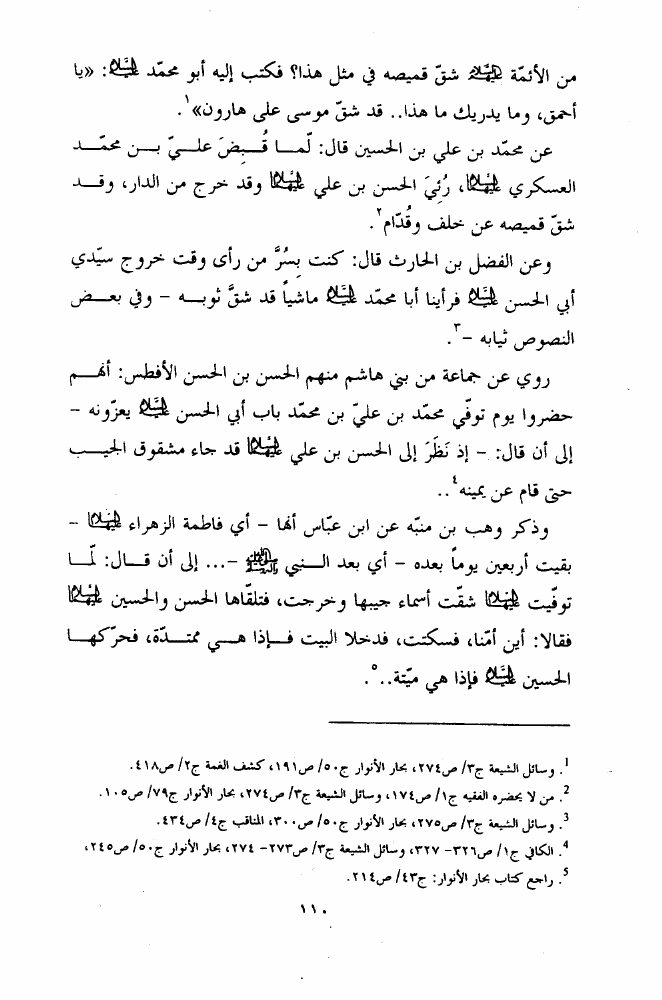 من الأئمّة عليهم السلام شقّ قميصه في مثل هذا؟ فكتب إليه أبو محمّد عليه السلام: «يا
أحمق، وما يدريك ما هذا.. قد شقّ موسى على هارون»١.
عن محمّد بن علي بن الحسين قال: لّمـا قُـبِضَ علـيّ بـن محمّـد
العسكري عليهما السلام، رُئِيَ الحسن بن علي عليهما السلام وقد خرج من الدار، وقـد
شقّ قميصه عن خلف وقُدّام٢.
وعن الفضل بن الحارث قال: كنت بِسُرَّ من رأى وقت خروج سيّدي
أبي الحسن عليه السلام فرأينا أبا محمّد عليه السلام ماشياً قد شقَّ ثوبـه - وفي بعـض
النصوص ثيابه -٣.
روي عن جماعة من بني هاشم منهم الحسن بن الحسن الأفطس: أنهـم
حضروا يوم توفّي محمّد بن عليّ بن محمّد باب أبي الحسن عليه السلام يعزّونه -
إلى أن قال: - إذ نَظَرَ إلى الحسن بن علي عليهما السلام قد جاء مشقوق الجيـب
حتى قام عن يمينه٤..
وذكر وهب بن منبّه عن ابن عبّاس أنها - أي فاطمة الزهراء عليها السلام -
بقيت أربعين يوماً بعده - أي بعد الـنبي صلى الله عليه وآله -... إلى أن قـال: لّمـا
توفّيت عليها السلام شقّت أسماء جيبها وخرجت، فتلقّاها الحسن والحسين عليهما السلام
فقالا: أين أمّنا، فسكتت، فدخلا البيت فـإذا هـي ممتـدّة، فحرّكهـا
الحسين عليه السلام فإذا هي ميّتة..٥.
1. وسائل الشيعة ج٣/ ص٢٧٤، بحار الأنوار ج٥٠/ ص١٩١، كشف الغمة ج٢/ ص٤١٨.
2. من لا يحضره الفقيه ج١/ ص١٧٤، وسائل الشيعة ج٣/ ص٢٧٤، بحار الأنوار ج٧٩/ ص١٠٥.
3. وسائل الشيعة ج٣/ ص٢٧٥، بحار الأنوار ج٥٠/ ص٣٠٠، المناقب ج٤/ ص٤٣٤.
4. الكافي ج١/ ص٣٢٦- ٣٢٧، وسائل الشيعة ج٣/ ص٢٧٣- ٢٧٤، بحار الأنوار ج٥٠/ ص٢٤٥،
5. راجع كتاب بحار الأنوار: ج٤٣/ ص٢١٤.
١١٠